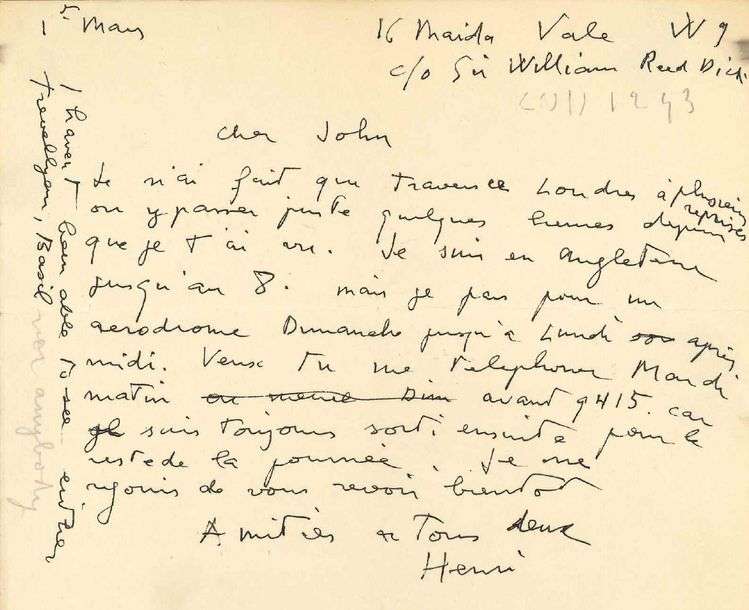 1er Mars
16 Maida Vale W9
c/o Sir William Reed Dick
1943
Cher John
Je n'ai fait que traverser Londres à plusieurs reprises
ou y passer juste quelques heures depuis
que je t'ai vu. Je suis en Angleterre
jusqu'au 8. mais je pars pour un
aerodrome Dimanche jusqu'à Lundi après
midi. Veux tu me telephoner Mardi
matin ou meme Dim avant 9h15. car
je suis toujours sorti ensuite pour le
reste de la journée. Je me
rejouis de vous revoir bientot
Amitiés a Tous deux
Henri
I haven't been able to see either
Trevellyan, Basil nor anybody